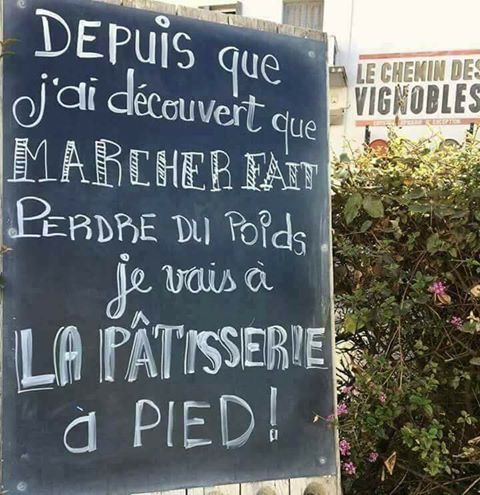 DEPUIS que
j'ai découvert que
MARCHER FAIT
PERDRE DU POIDS
je vais à
LA PÂTISSERIE
à PIED !
LE CHEMIN DES
VIGNOBLES